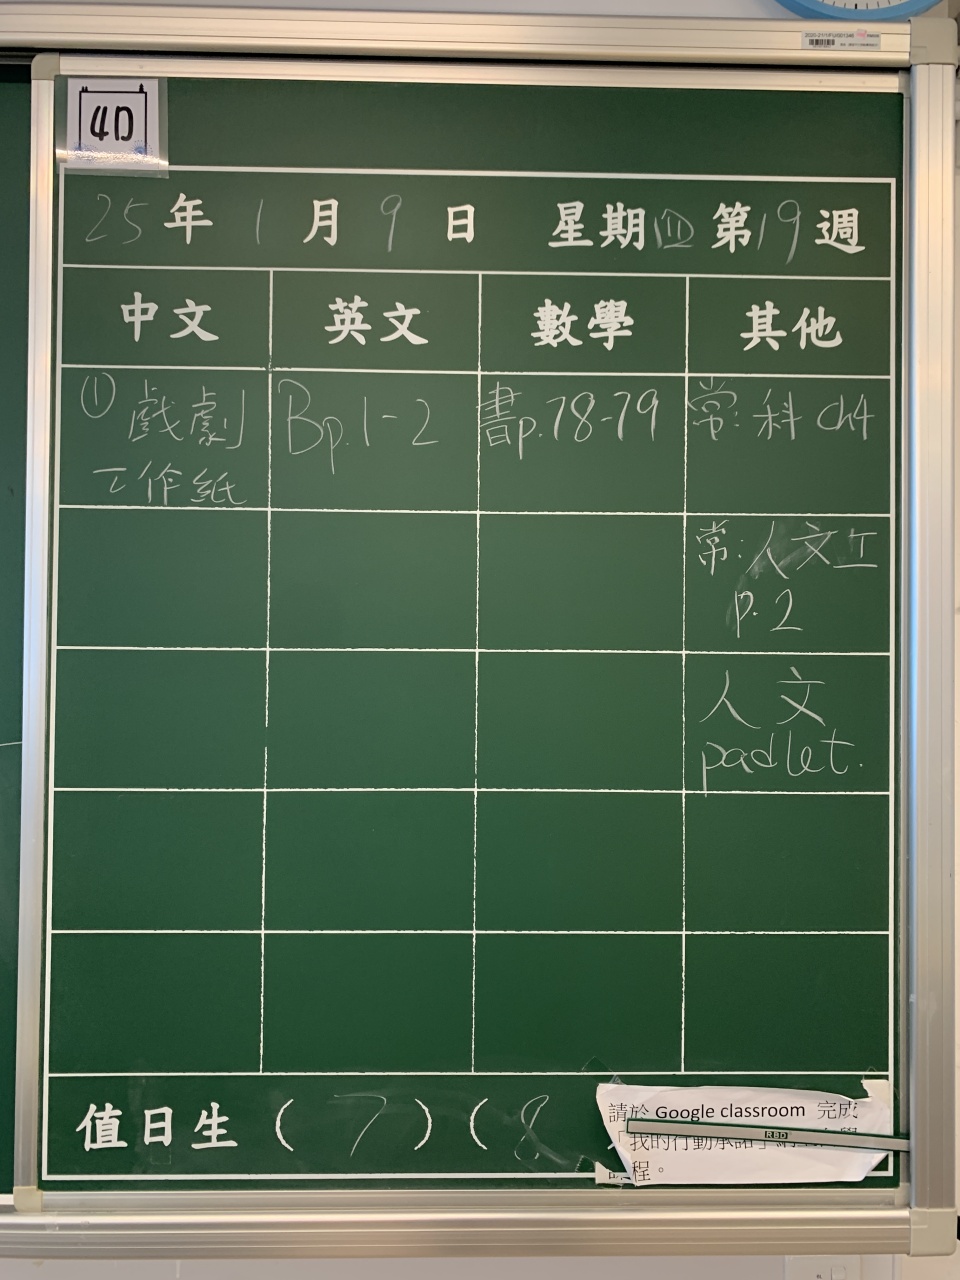 4D
25年1月9日 星期四第19週
中文 英文 數學 其他
① 戲劇
工作紙
Bp.1-2
書p.78-79
常:科 ch4
常:人文工
p.2
人文
padlet.
值日生(7)(8
請於 Google classroom 完成
「我的行動承諾」
程。
RBD